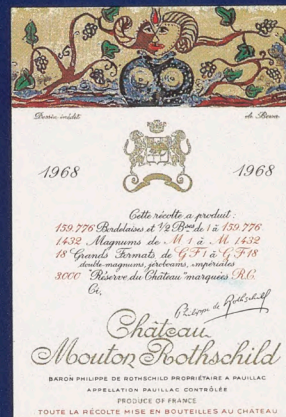 Dessin inédit de Bona
1968 1968
Cette récolte a produit:
159.776 Bordelaises et 1/2 Bses de 1 à 159.776
1432 Magnums de M 1 à M 1432
18 Grands Formats de GF 1 à GF 18
double-magnums, jéroboams, impériales
3000 "Réserve du Château" marquées R.C.
Ci,
Philippe de Rothschild
Château
Mouton Rothschild
BARON PHILIPPE DE ROTHSCHILD PROPRIÉTAIRE A PAUILLAC
APPELLATION PAUILLAC CONTRÔLÉE
PRODUCE OF FRANCE
TOUTE LA RÉCOLTE MISE EN BOUTEILLES AU CHÂTEAU